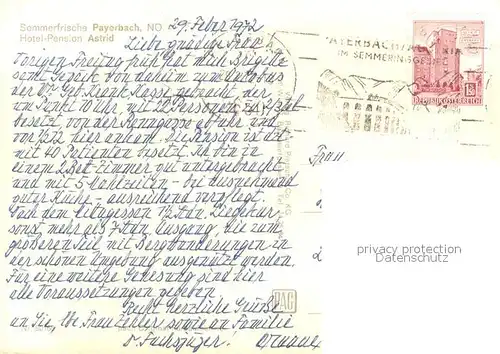 Sommerfrische Payerbach, NÖ
Hotel-Pension Astrid
29. Feber 1972
Liebe gnädige Frau
Vorigen Freitag früh hat mich Brigitte
samt Gepäck von daheim zum Autobus
der Gebietskrankenkasse gebracht, der
um Punkt 10 Uhr, mit 22 Personen
besetzt, von der abfuhr und
vor 1/2 12 hier ankam. Die Pension ist dzt.
mit 40 Patienten besetzt. Ich bin in
einem 2 Bett-Zimmer gut untergebracht
und mit 5 Mahlzeiten - bei ausnehmend
guter Küche - ausreichend verpflegt.
Nach dem Mittagessen 1 1/2 Stdn. Liegekur,
sonst mehr als 7 Stdn. Ausgang, die zum
größeren Teil mit Bergwanderungen in
der schönen Umgebung ausgenützt werden.
Für eine weitere Genesung sind hier
alle Voraussetzungen gegeben.
Recht herzliche Grüße
an Sie, lbe. Frau sowie an Familie
PAG
PAYERBACH
IM SEMMERINGGEBIET
REPUBLIK ÖSTERREICH
Frau
privacy protection
privacy protection